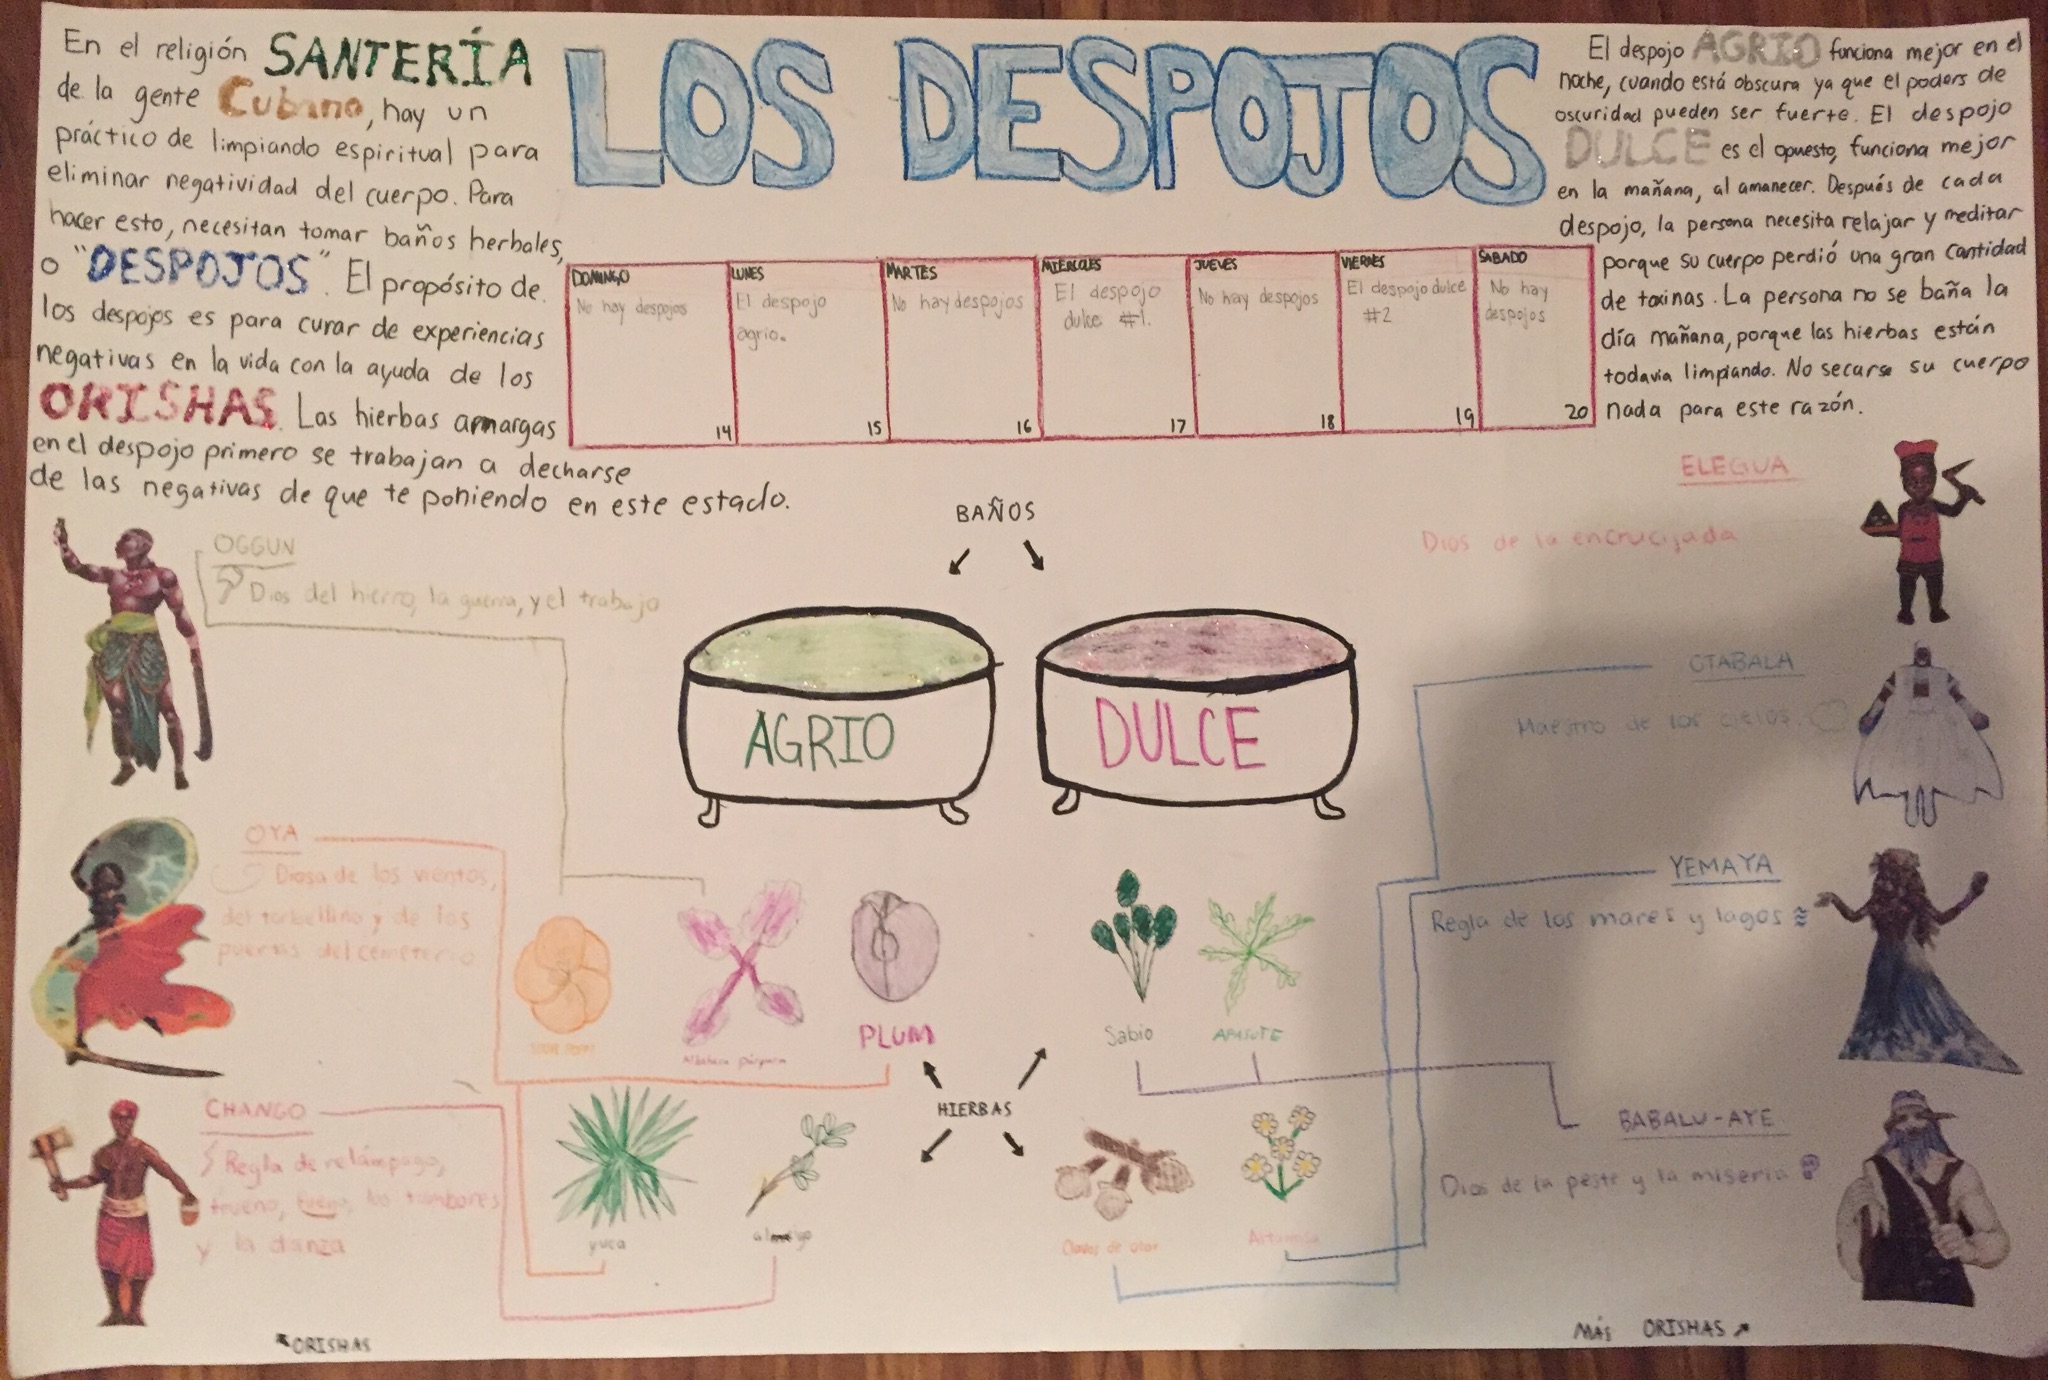 LOS DESPOJOS
En el religión SANTERÍA
de la gente Cubano, hay un
práctico de limpiando espiritual para
eliminar negatividad del cuerpo. Para
hacer esto, necesitan tomar baños herbales,
o "DESPOJOS". El propósito de
los despojos es para curar de experiencias
negativas en la vida con la ayuda de los
ORISHAS. Las hierbas amargas
en el despojo primero se trabajan a decharse
de las negativas de que te poniendo en este estado.
DOMINGO
No hay despojos
14
LUNES
El despojo
agrio.
15
MARTES
No hay despojos
16
MIÉRCOLES
El despojo
dulce #1.
17
JUEVES
No hay despojos
18
VIERNES
El despojo dulce
#2
19
SABADO
No hay
despojos
20
El despojo AGRIO funciona mejor en el
noche, cuando está obscura ya que el poders de
oscuridad pueden ser fuerte. El despojo
DULCE es el opuesto, funciona mejor
en la mañana, al amanecer. Después de cada
despojo, la persona necesita relajar y meditar
porque su cuerpo perdió una gran cantidad
de toxinas. La persona no se baña la
día mañana, porque las hierbas están
todavia limpiando. No secarse su cuerpo
nada para este razón.
BAÑOS
AGRIO
DULCE
OGGUN
Dios del hierro, la guerra, y el trabajo
OYA
Diosa de los vientos,
del torbellino y de las
puertas del cemeterio
CHANGO
Regla de relámpago,
trueno, fuego, los tambores
y la danza
ORISHAS
Albahaca Púrpura
PLUM
yuca
HIERBAS
Sabio
APASOTE
Clavos de olor
ELEGUA
Dios de la encrucijada
OTABALA
Maestro de los cielos.
YEMAYA
Regla de los mares y lagos
BABALU-AYE
Dios de la peste y la miseria
MÁS ORISHAS